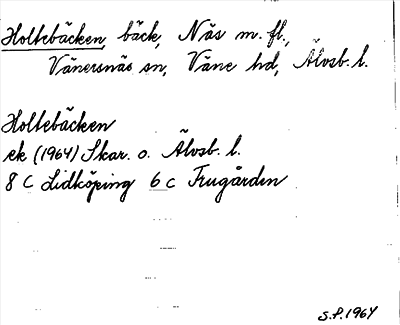 Holtebäcken, bäck, Näs m. fl.,
Vänersnäs sn, Väne hd, Älvsb. l.
Holtebäcken
ek (1964) Skar. o. Älvsb. l.
8 C Lidköping 6 c Frugården
S.P. 1964